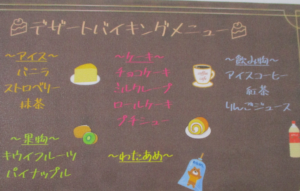 デザートバイキングメニュー
~アイス~
バニラ
ストロベリー
抹茶
~果物~
キウイフルーツ
パイナップル
~ケーキ~
チョコケーキ
ミルクレープ
ロールケーキ
プチシュー
~わたあめ~
~飲み物~
アイスコーヒー
紅茶
りんごジュース